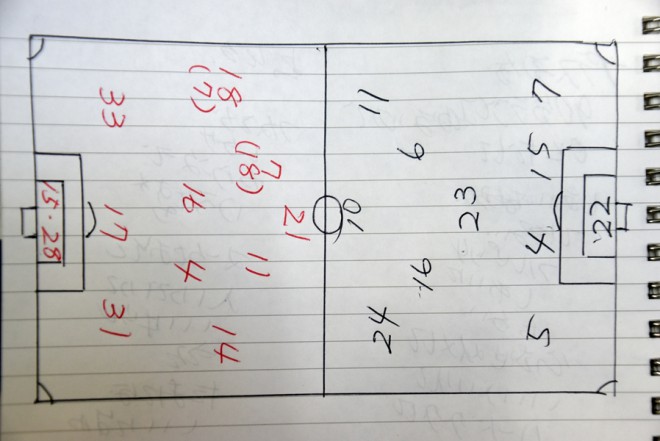 21
7
(18)
11
18
(7)
14
16
4
33
17
31
15・28
24
10
11
16
6
23
5
4
15
7
22